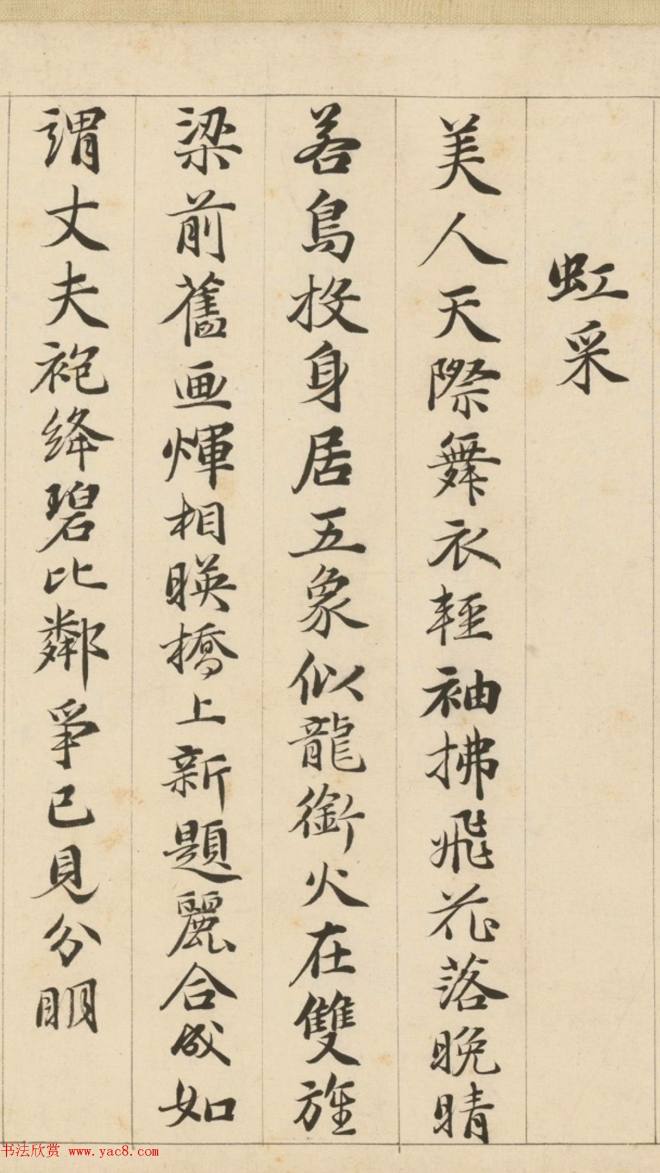 虹采
美人天際舞衣輕袖拂飛花落晚晴
若鳥投身居五象似龍銜火在雙旌
梁前舊画煇相暎橋上新題麗合成如
謂丈夫袍絳碧比鄰爭已見分眀
书法欣赏 "www.yac8.com"